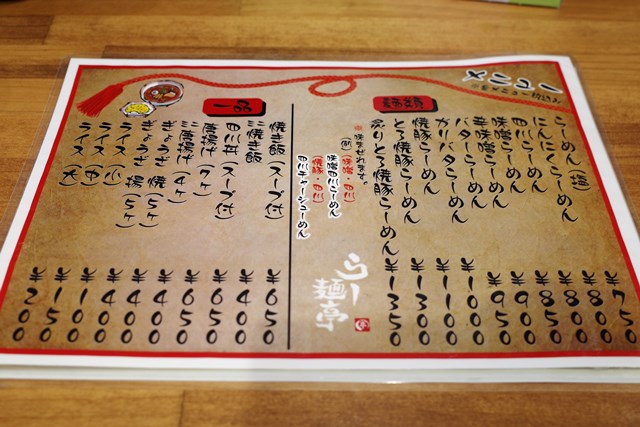 メニュー
らーめん(塩) ¥750
にんにくらーめん ¥800
四川らーめん ¥800
味噌らーめん ¥850
辛味噌らーめん ¥900
バターらーめん ¥950
ガリバタらーめん ¥1000
焼豚らーめん ¥1100
とろ焼豚らーめん ¥1300
炙りとろ焼豚らーめん ¥1350
※混ぜれます。
(例)
味噌・四川
味噌四川らーめん
焼豚・四川
四川チャーシューめん
らー麺亭
一品
焼き飯(スープ付) ¥650
ミニ焼き飯 ¥400
四川丼(スープ付) ¥650
唐揚げ(7ヶ) ¥650
ミニ唐揚げ(4ヶ) ¥400
ぎょうざ 焼(5ヶ) ¥400
ぎょうざ 揚(5ヶ) ¥400
ライス(小) ¥100
ライス(中) ¥150
ライス(大) ¥200